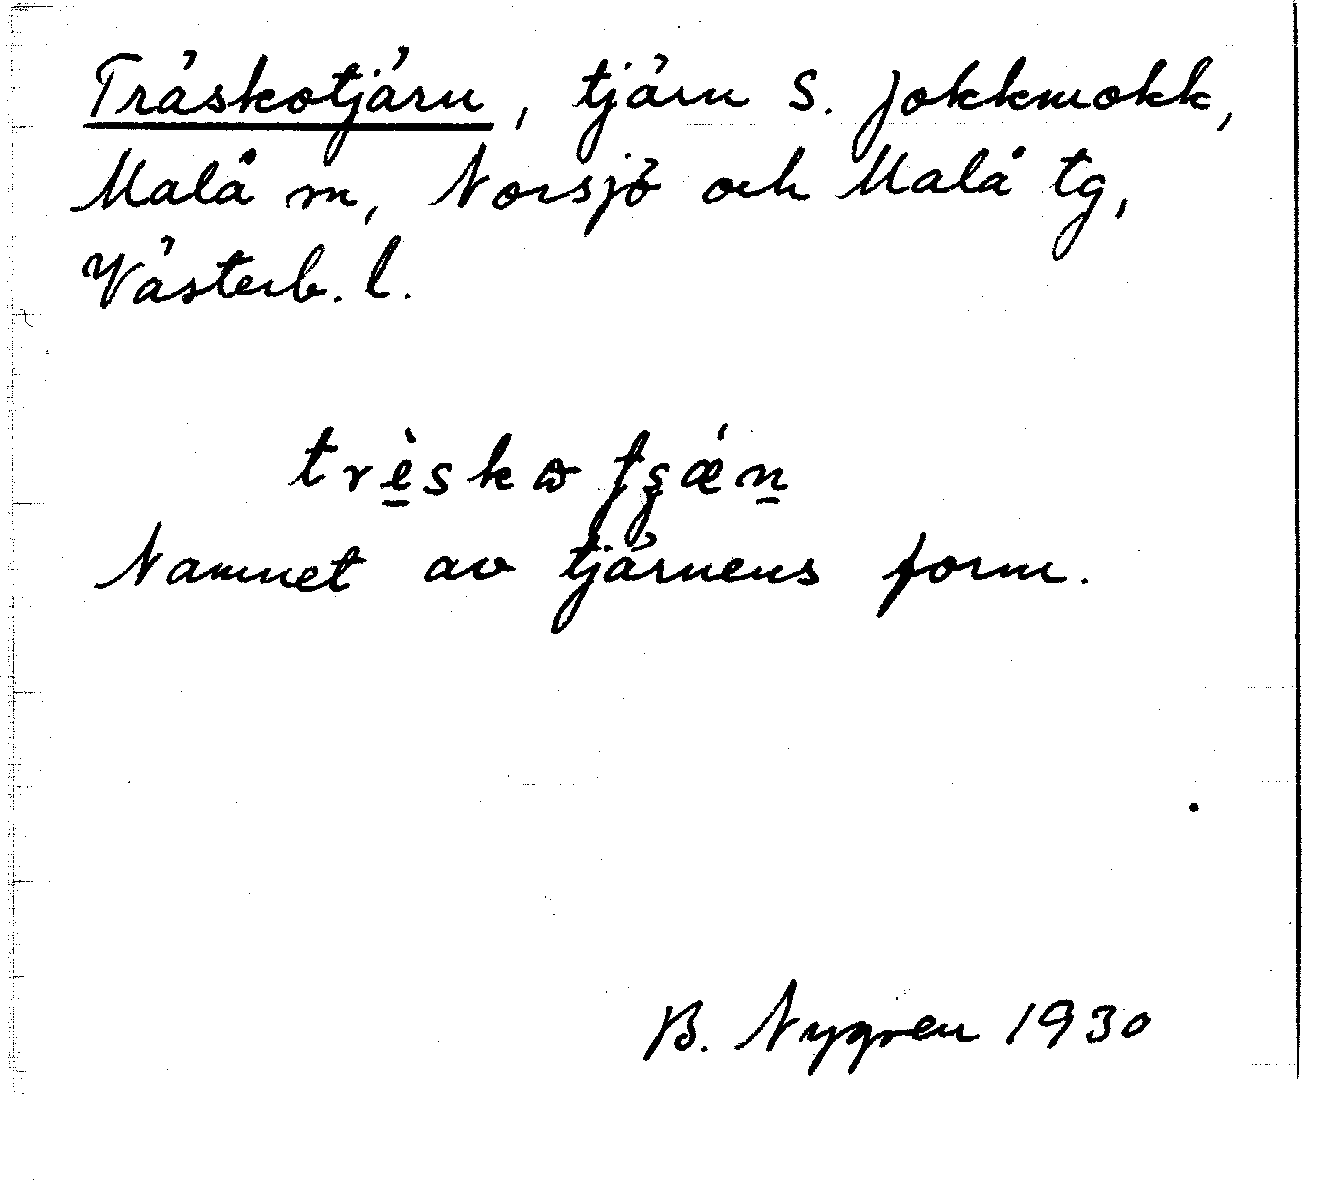 Träskotjärn, tjärn S. Jokkmokk,
Malå sn, Norsjö och Malå tg,
Västerb. l.
Namnet av tjärnens form.
B. Nygren 1930